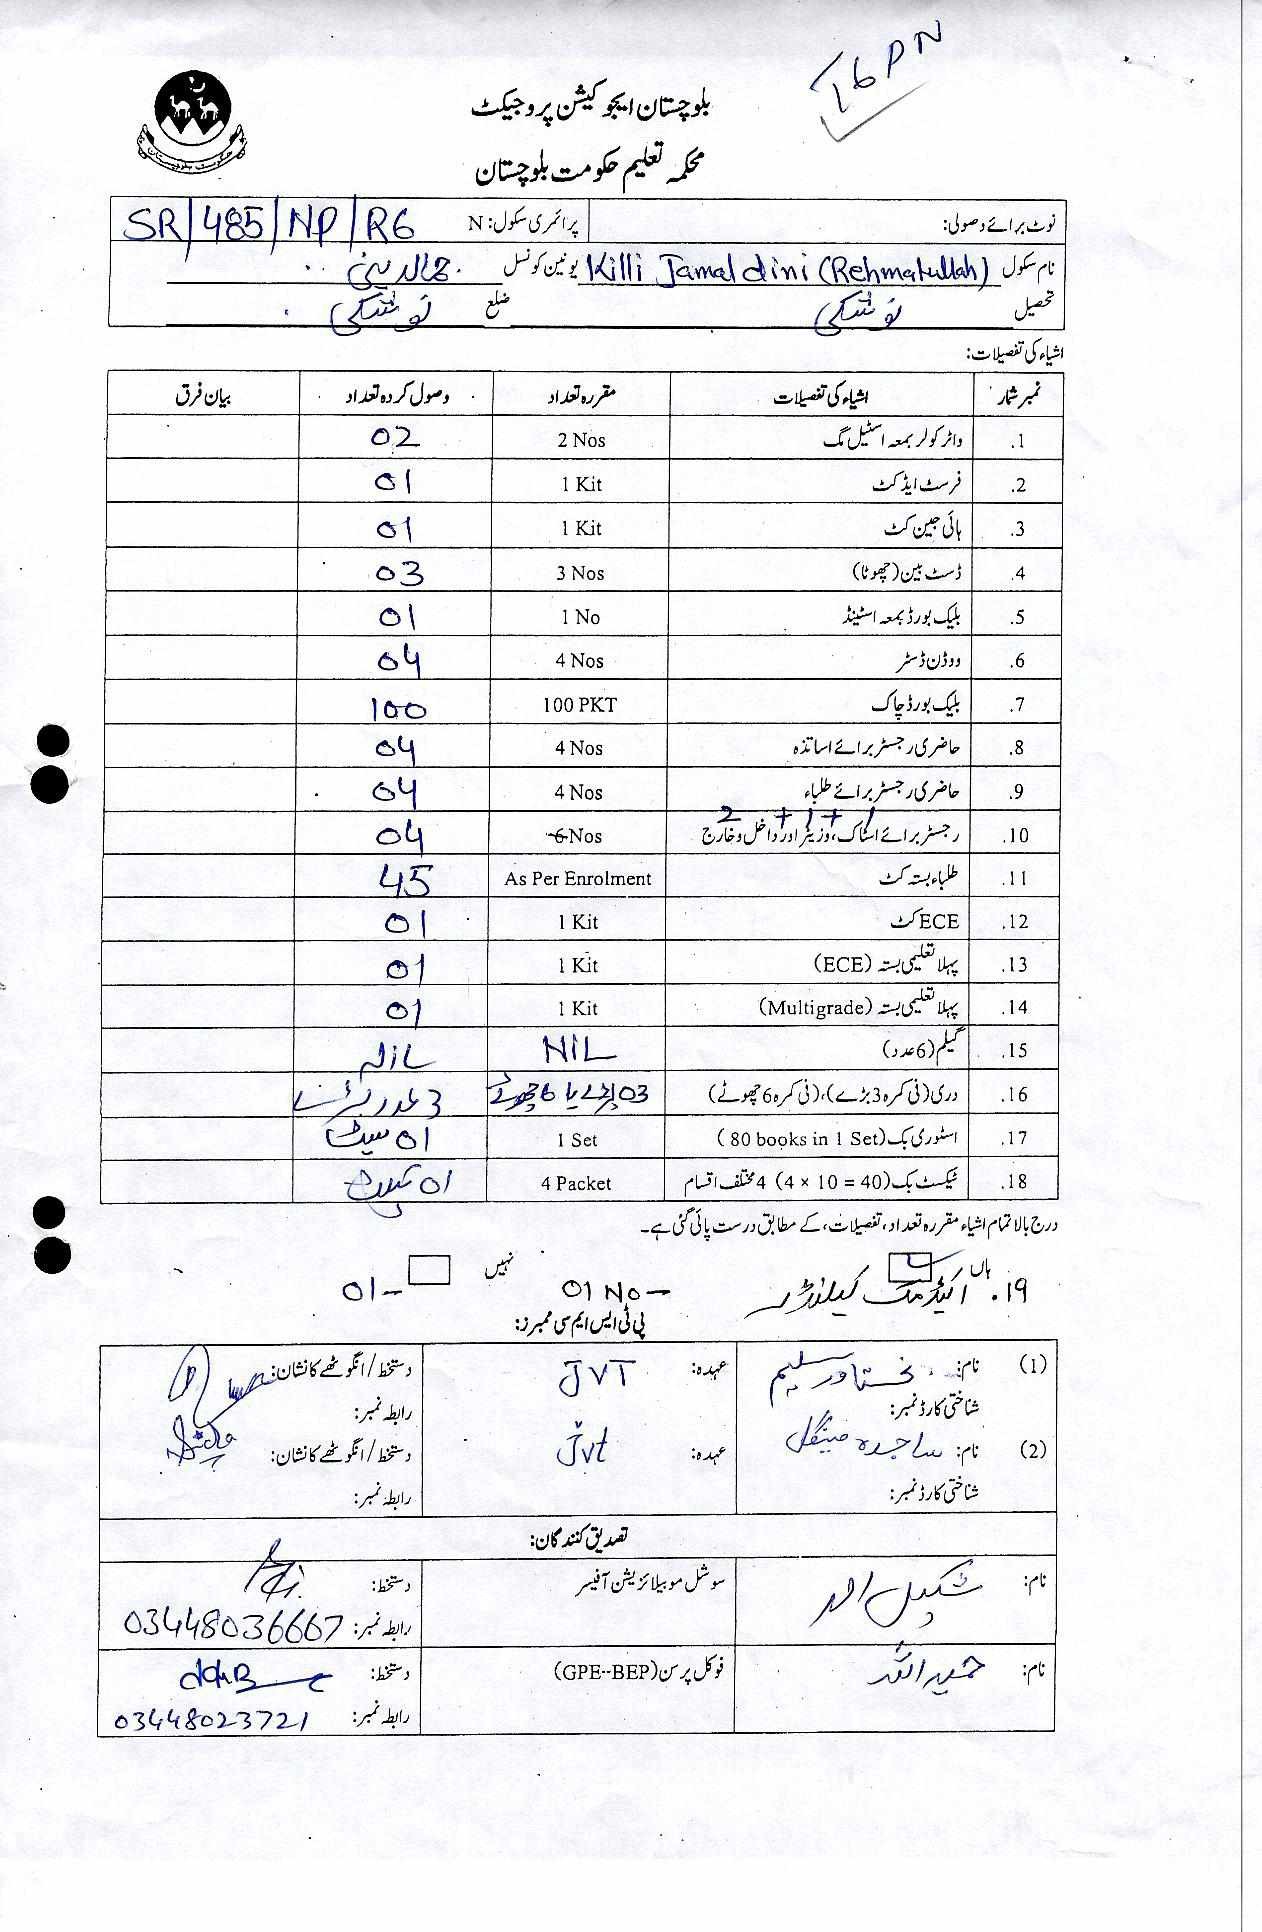 16 PN
بلوچستان ایجوکیشن پروجیکٹ
محکمہ تعلیم حکومت بلوچستان
حکومت بلوچستان
نوٹ برائے وصولی: پرائمری سکول: N SR/485/NP/R6
نام سکول Killi Jamaldini (Rehmatullah) یونین کونسل جمالدینی
تحصیل نوشکی ضلع نوشکی
اشیاء کی تفصیلات:
نمبر شمار اشیاء کی تفصیلات مقررہ تعداد وصول کردہ تعداد بیان فرق
1. واٹر کولر بمعہ اسٹیل مگ 2 Nos 02
2. فرسٹ ایڈ کٹ 1 Kit 01
3. ہائی جین کٹ 1 Kit 01
4. ڈسٹ بین (چھوٹا) 3 Nos 03
5. بلیک بورڈ بمعہ اسٹینڈ 1 No 01
6. ووڈن ڈسٹر 4 Nos 04
7. بلیک بورڈ چاک 100 PKT 100
8. حاضری رجسٹر برائے اساتذہ 4 Nos 04
9. حاضری رجسٹر برائے طلباء 4 Nos 04
2 + 1 + 1
10. رجسٹر برائے اسٹاک، وزیٹر اور داخل و خارج 6 Nos 04
11. طلباء بستہ کٹ As Per Enrolment 45
12. ECE کٹ 1 Kit 01
13. پہلا تعلیمی بستہ (ECE) 1 Kit 01
14. پہلا تعلیمی بستہ (Multigrade) 1 Kit 01
15. گیلم (6 عدد) NIL
16. دری (فی کمرہ 3 بڑے)، (فی کمرہ 6 چھوٹے) 03 بڑے یا 6 چھوٹے 3 عدد بڑے
17. اسٹوری بک (80 books in 1 Set) 1 Set 01 سیٹ
18. ٹیکسٹ بک (4 × 10 = 40) 4 مختلف اقسام 4 Packet 01
درج بالا تمام اشیاء مقررہ تعداد، تفصیلات، کے مطابق درست پائی گئی ہے۔
ہاں نہیں
19. اکیڈمک کیلنڈر 01 No - 01-
پی ٹی ایس ایم سی ممبرز:
(1) نام: بختاور سلیم عہدہ: JVT دستخط / انگوٹھے کا نشان:
شناختی کارڈ نمبر: رابطہ نمبر:
(2) نام: ساجدہ مینگل عہدہ: Jvt دستخط / انگوٹھے کا نشان:
شناختی کارڈ نمبر: رابطہ نمبر:
تصدیق کنندگان:
نام: شکیل احمد سوشل موبیلائزیشن آفیسر دستخط:
رابطہ نمبر: 03448036667
نام: حمید اللہ فوکل پرسن (GPE--BEP) دستخط:
رابطہ نمبر: 03448023721